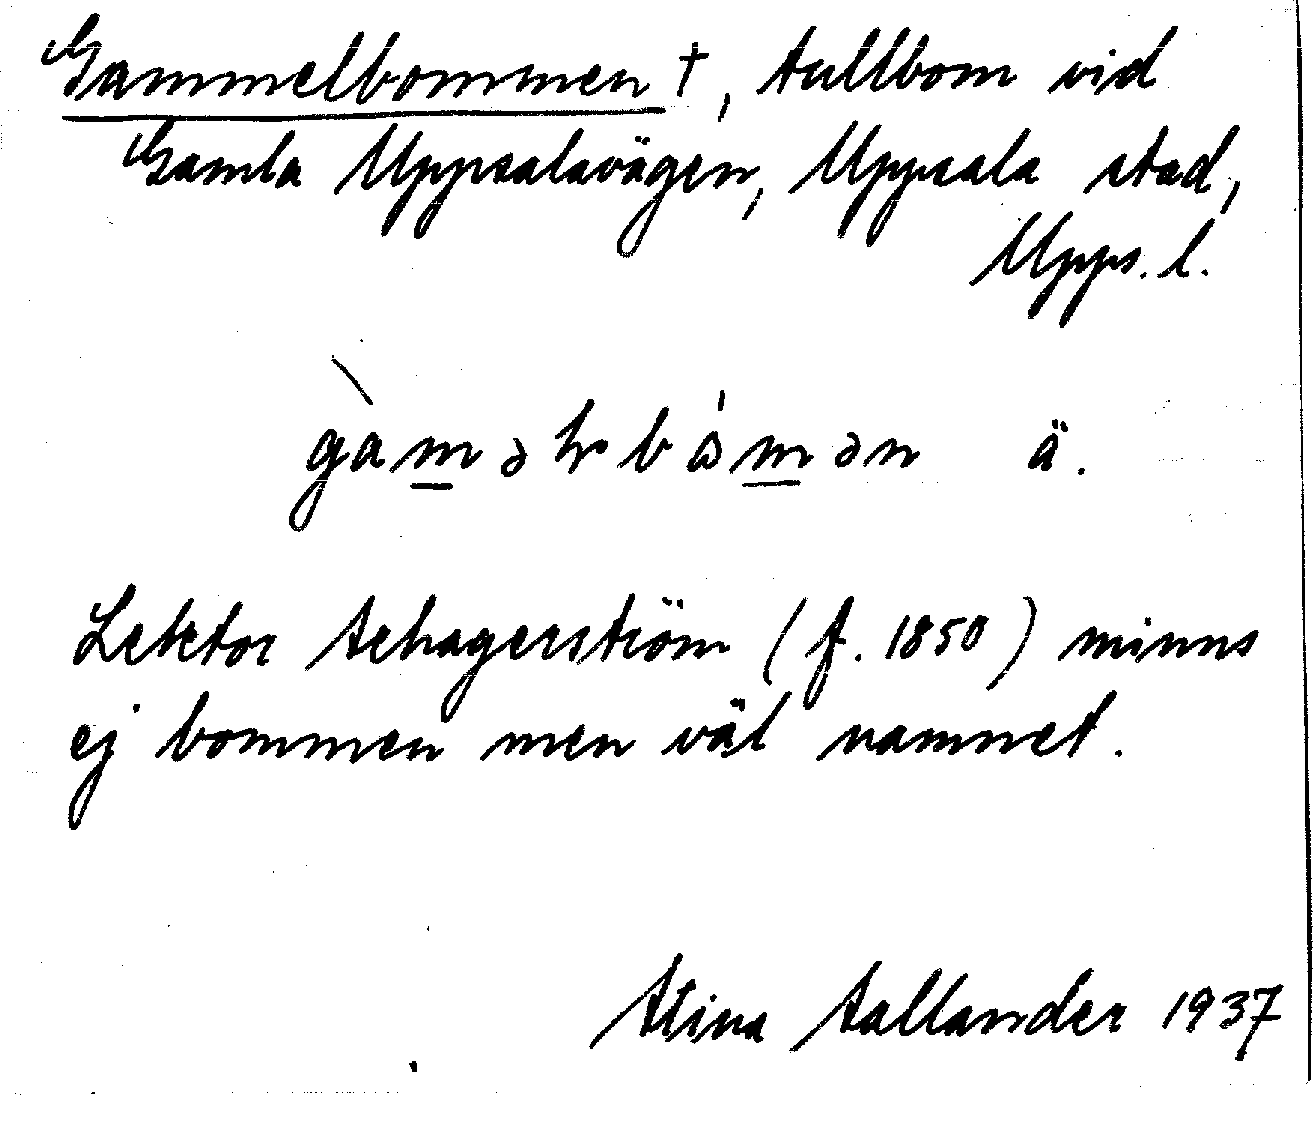 Gammelbommen †, tullbom vid
Gamla Uppsalavägen, Uppsala stad,
Upps. l.
ä.
Lektor Schagerström (f. 1850) minns
ej bommen men väl namnet.
Stina Sallander 1937